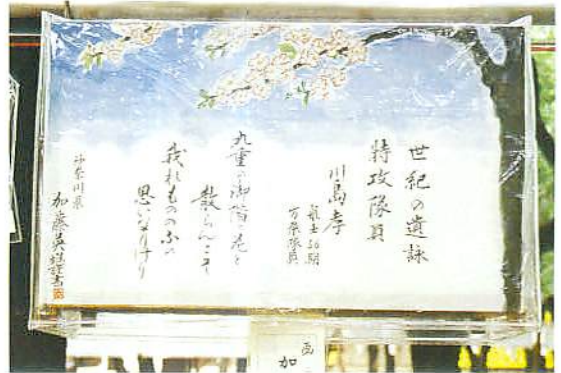 世紀の遺詠
特攻隊員
川島孝
航士56期
万朶隊員
九重の御階の花と
散らんこそ
我れもののふの
思いなりけり
神奈川県
加藤英謹書
画
加